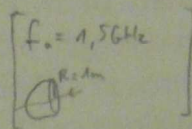 f₀ = 1,5 GHz
R = 1m